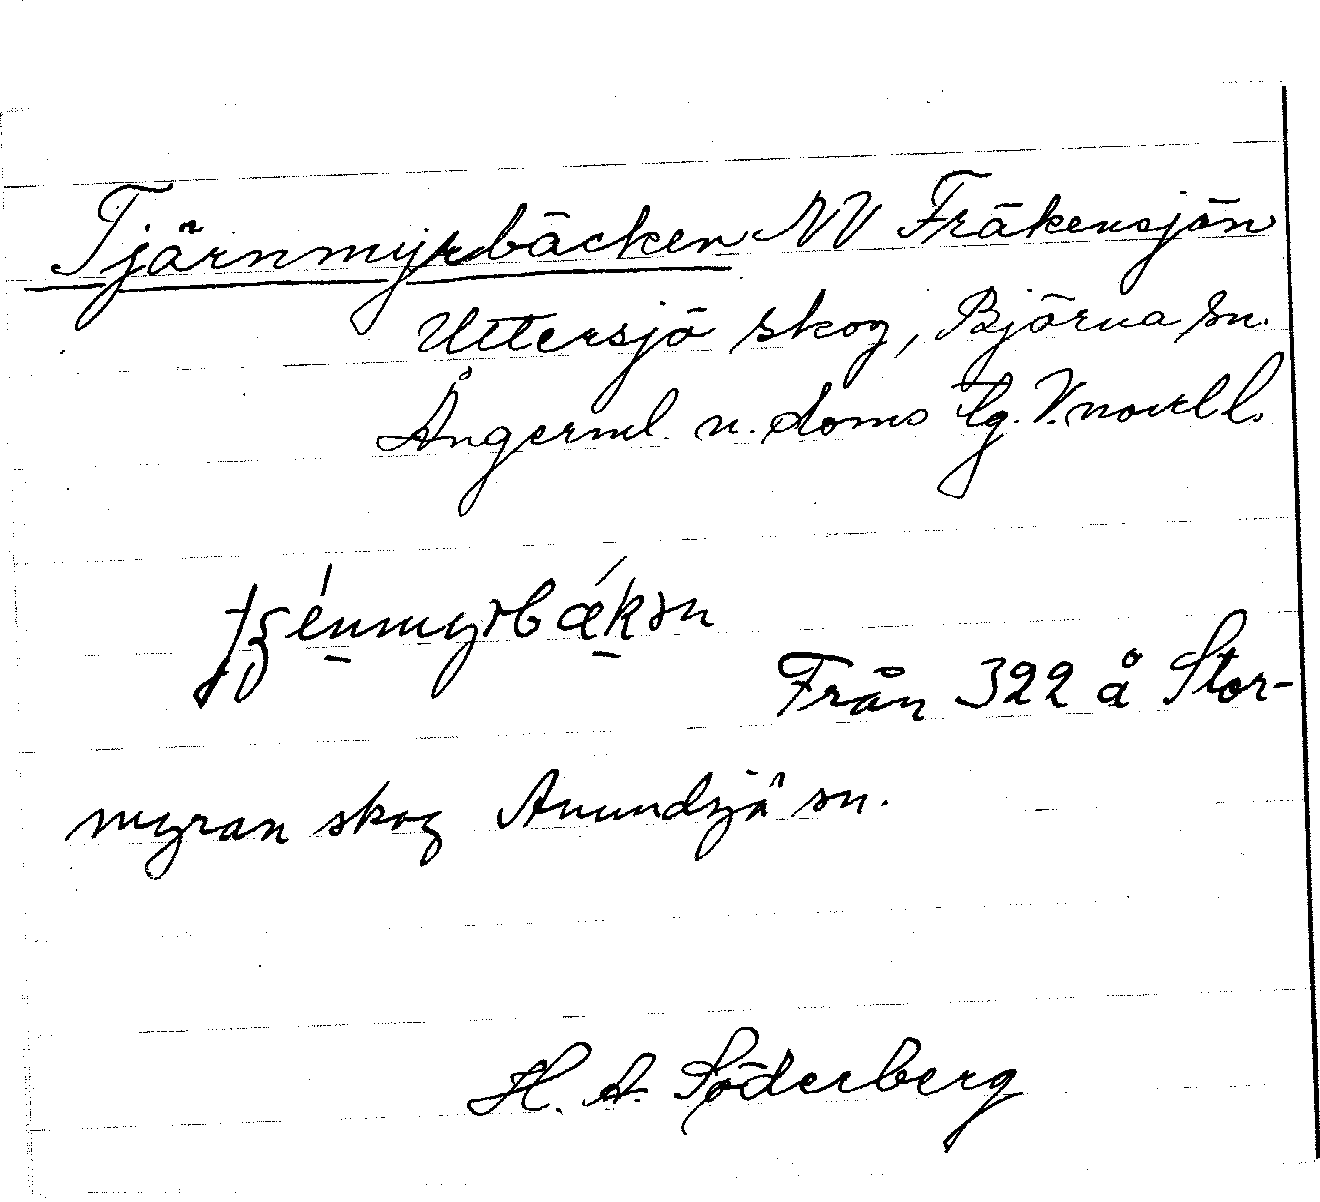 Tjärnmyrbäcken NV Fräkensjön
Uttersjö skog, Björna sn.
Ångerml. n. doms lg. V.norrl l.
Från 322 å Stor-
myran skog Anundsjö sn.
H. A. Söderberg